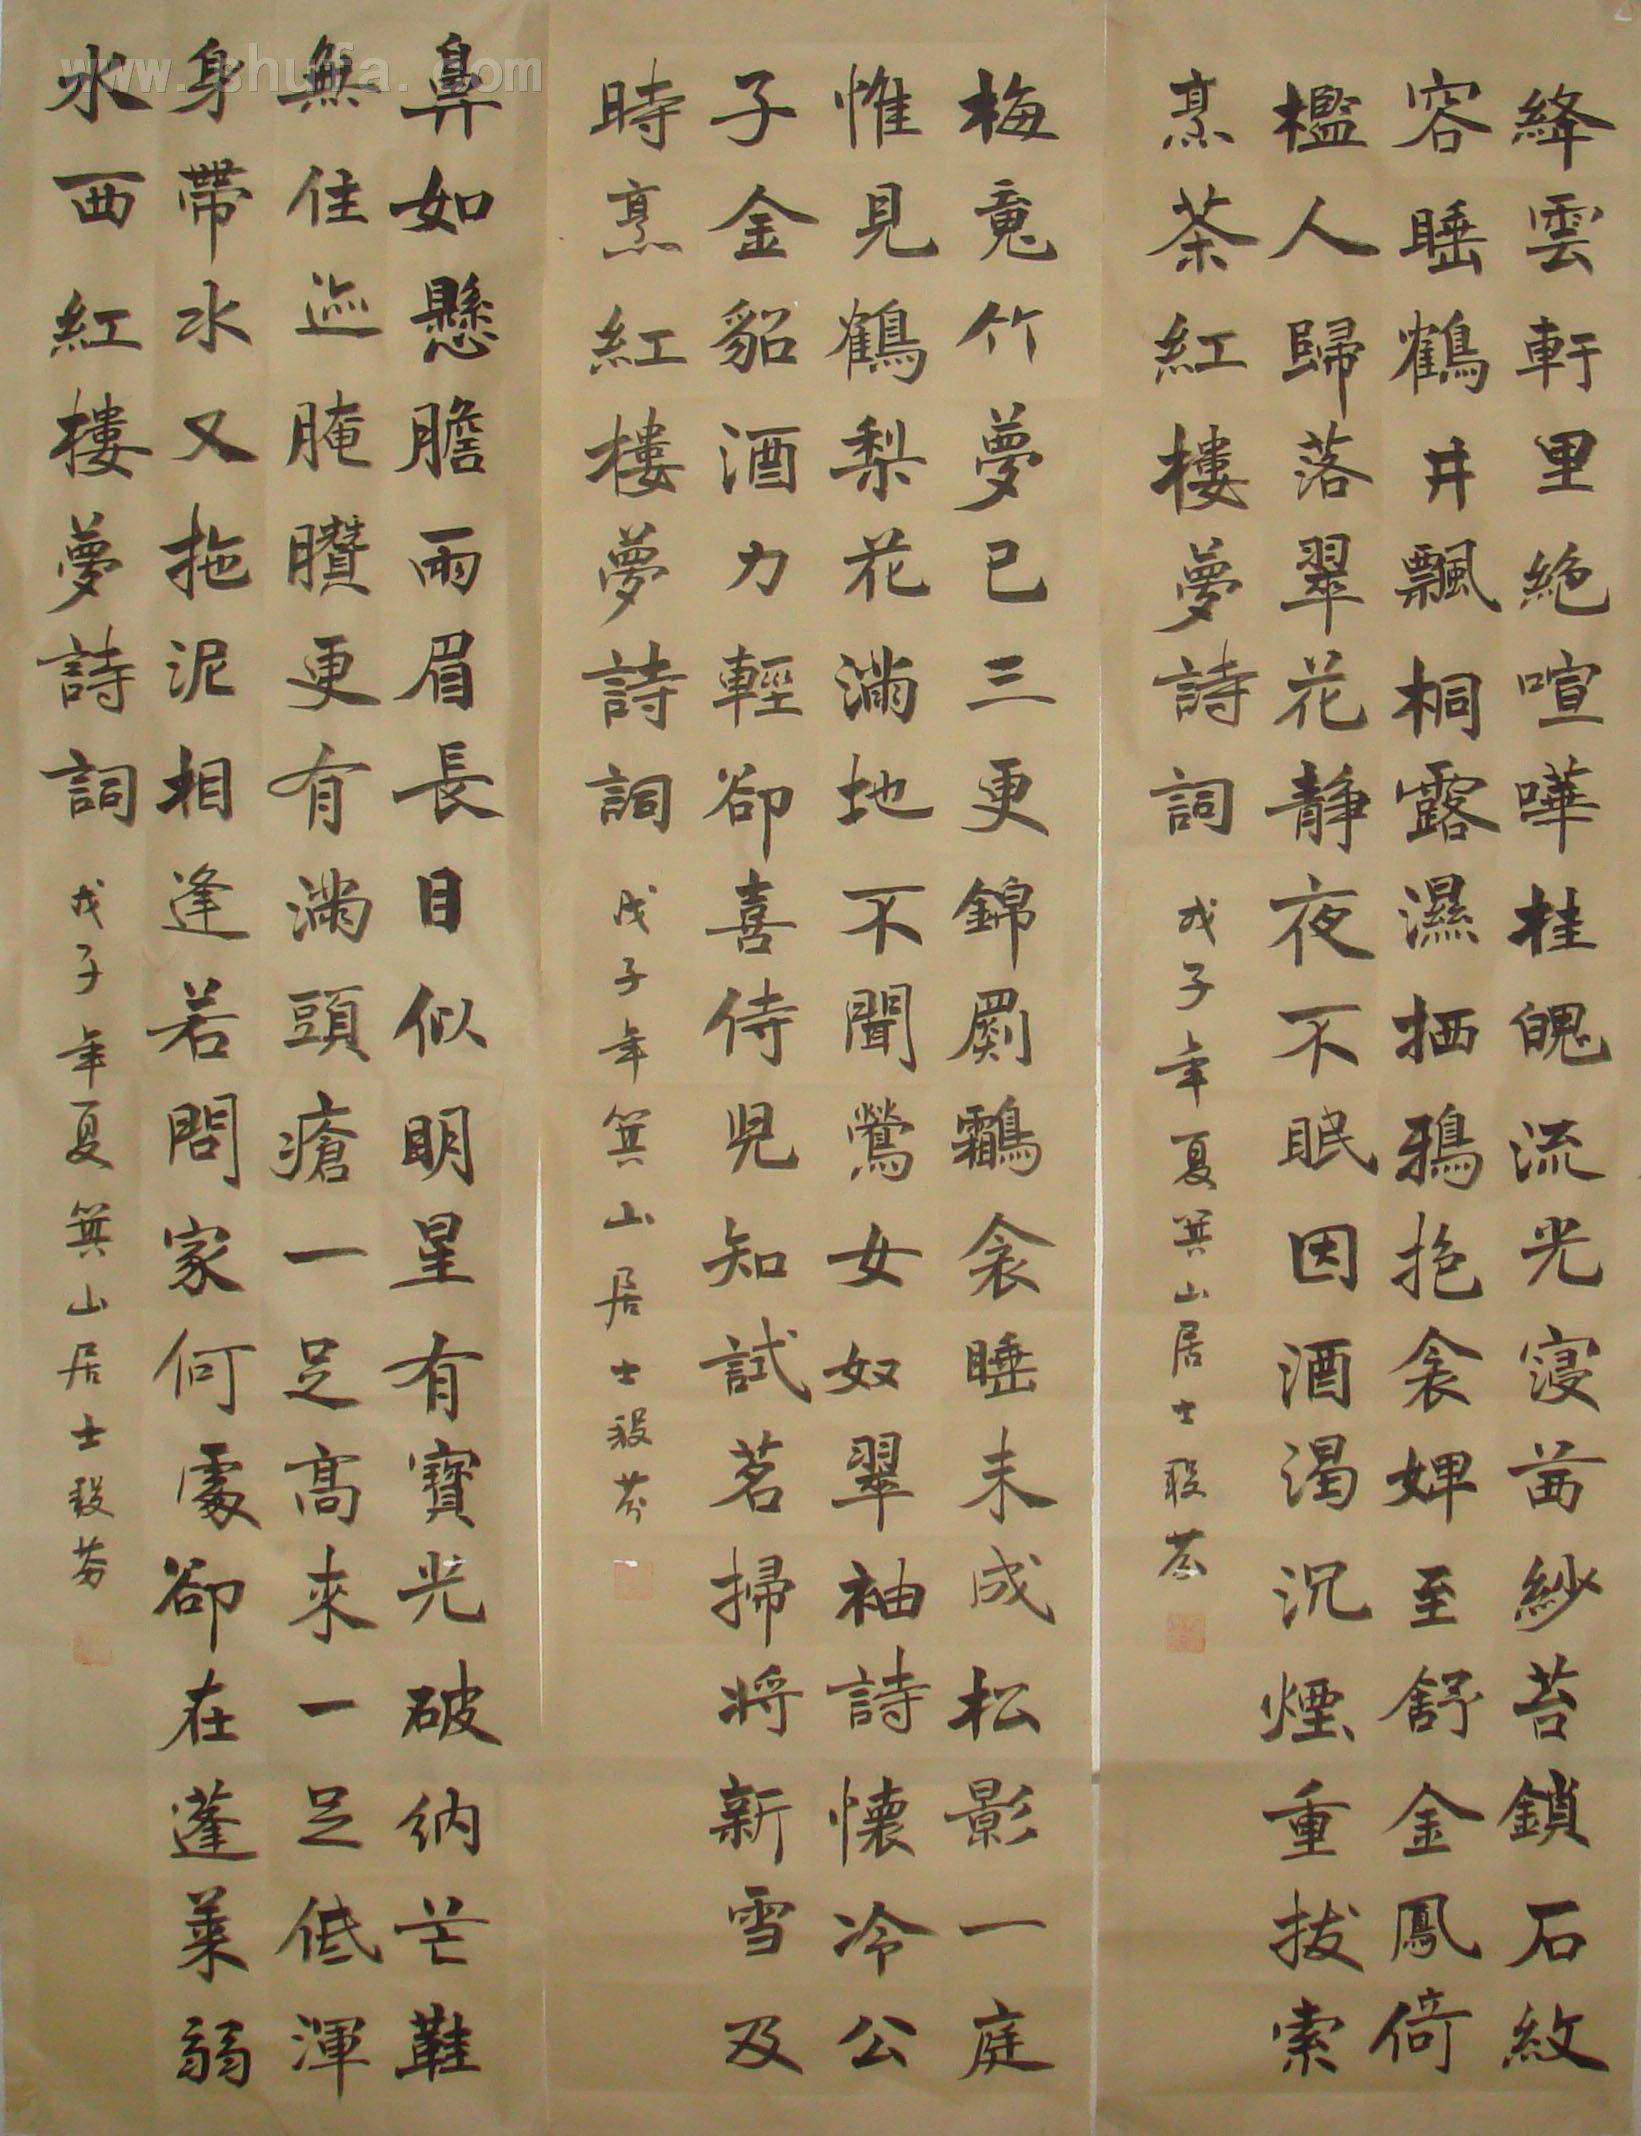 絳雲軒里絶喧嘩桂魄流光寑茜紗苔鎖石紋
容睡鶴井飄桐露濕栖鴉抱衾婢至舒金鳳倚
檻人歸落翠花静夜不眠因酒渴沉煙重拔索
烹茶紅樓夢詩詞 戊子年夏箕山居士段芬
梅竟竹夢已三更錦罽鸘衾睡未成松影一庭
惟見鶴梨花滿地不聞鶯女奴翠袖詩懷冷公
子金貂酒力輕卻喜侍兒知試茗掃將新雪及
時烹紅樓夢詩詞 戊子年箕山居士段芬
鼻如懸膽兩眉長目似明星有寶光破納芒鞋
無住迹腌臢更有滿頭瘡一足高來一足低渾
身帶水又拖泥相逢若問家何處卻在蓬萊弱
水西紅樓夢詩詞 戊子年夏箕山居士段芬